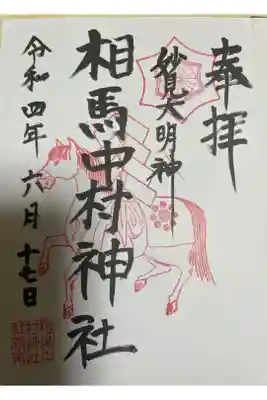 奉拝
妙見大明神
相馬中村神社
令和四年六月十七日